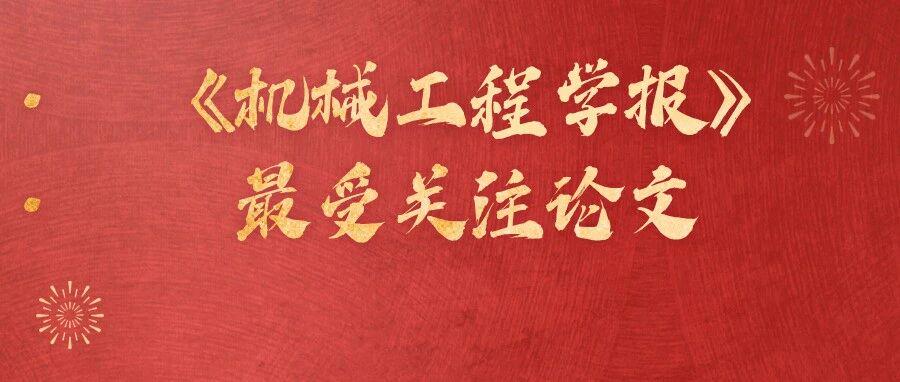 《机械工程学报》
最受关注论文